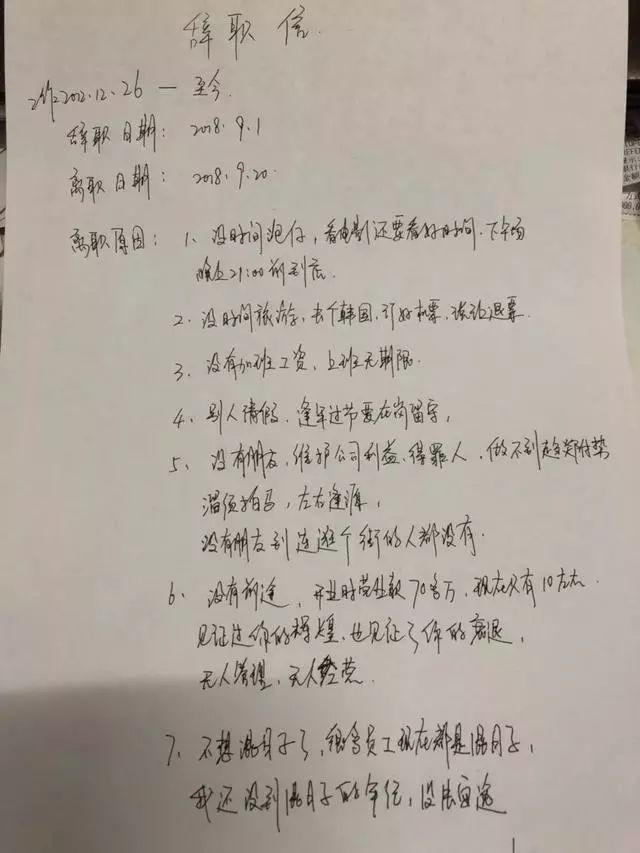 辞职信
工作2012.12.26 — 至今
辞职日期: 2018.9.1
离职日期: 2018.9.20
离职原因: 1、没时间泡仔,看电影还要看好时间.下午场
晚上21:00前到店.
2、没时间旅游,去个韩国,订好机票,被迫退票
3、没有加班工资,上班无期限.
4、别人请假、逢年过节要在岗留守,
5、没有朋友,维护公司利益、得罪人,做不到趋炎附势
溜须拍马,左右逢源,
没有朋友到连逛个街的人都没有.
6、没有前途,开业时营业额70多万,现在只有10左右.
见证过你的辉煌、也见证了你的衰退,
无人管理,无人经营.
7、不想混日子了,很多员工现在都是混日子,
我还没到混日子的年纪,没法